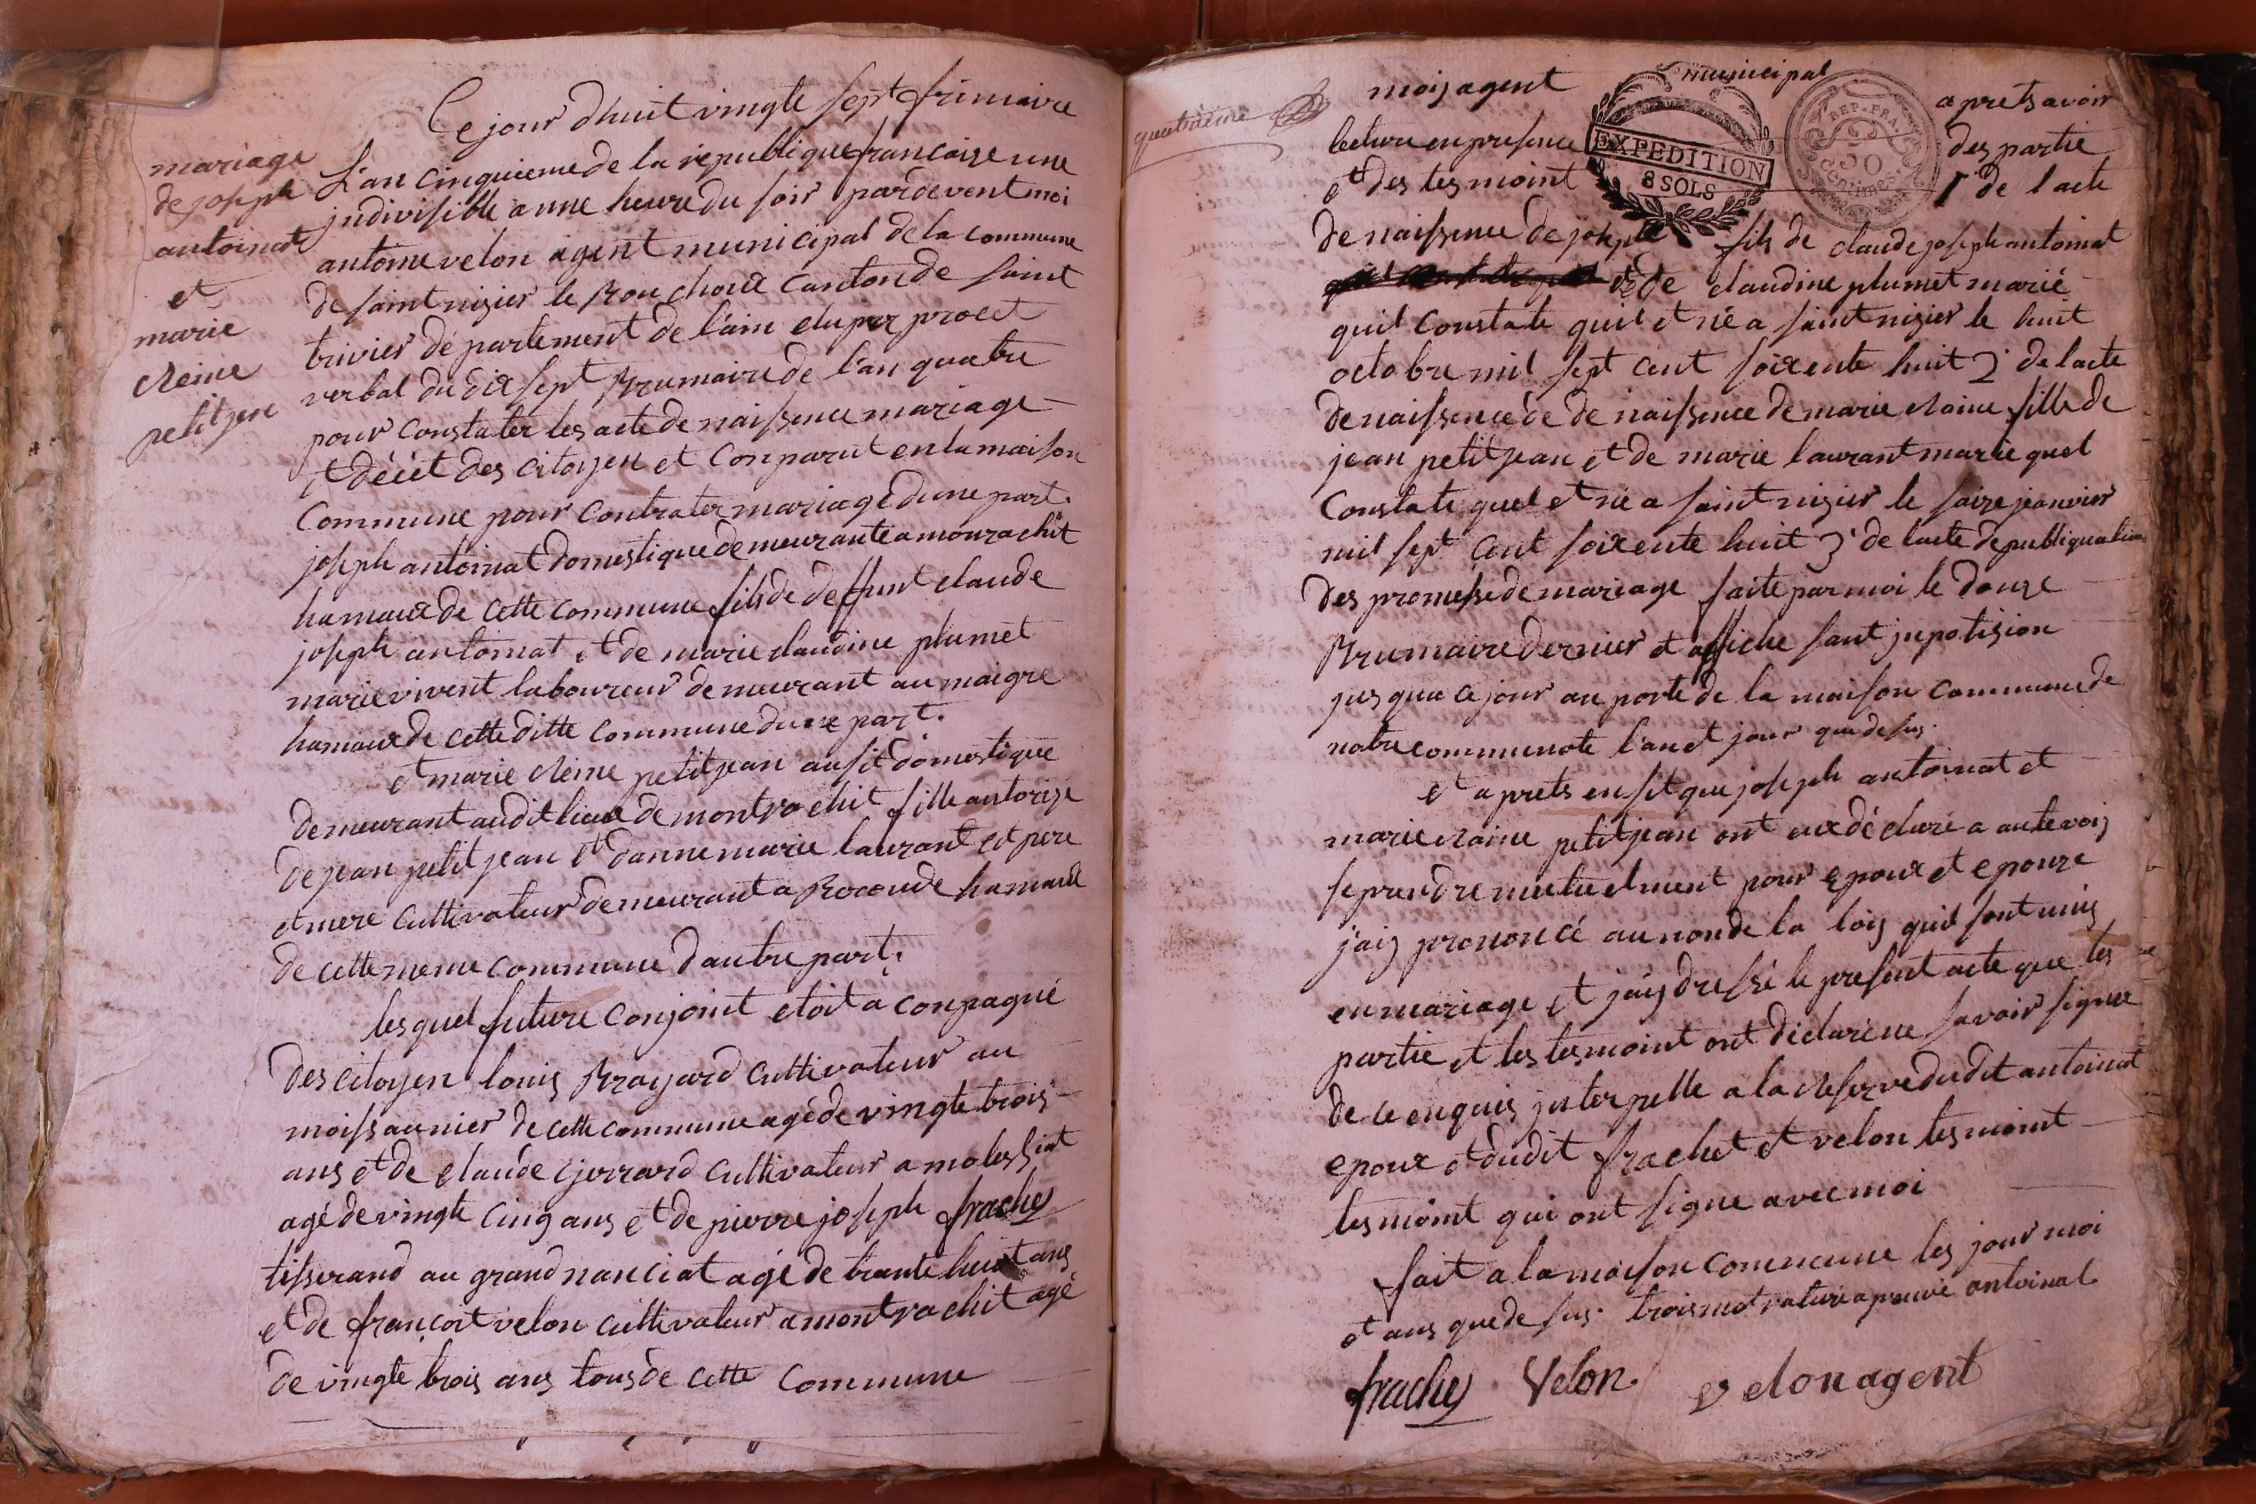 mariage
de joseph
antoinat
et
marie
reine
petitjen
Ce jour dhuit vingte sept frimaire
L'an cinquieme de la republique francaise une
indivisible a une heure du soir pardevent moi
antoine velon agent municipal de la commune
de saint nizier le Bouchoux canton de saint
trivier département de l'ain elu par procet
verbal du dix sept Brumaire de l'an quatre
pour constater les acte de naissence mariage
et décèt des citoyen et conparut en la maison
commune pour contrater mariage dune part.
joseph antoinat domestique demeurante a monrachit
hamaux de cette commune fils de deffunt claude
joseph antoinat et de marie claudine plumet
marie vivent laboureur demeurant au maigre
hamaux de cette ditte commune dune part.
et marie reine petitjean ausit domestique
demeurant audit lieux de montrachit fille autorize
de jean petitjean et danne marie laurant est pere
et mere cultivateur demeurant a Rocoude hamaux
de cette meme commune d'autre part.
lesquel future conjoint etoit aconpagné
des citoyen louis Brayard cultivateur au
moissaunier de cette commune agé de vingte trois
ans et de claude gerrard cultivateur a molessiat
agé de vingte cinq ans et de pierre joseph frachey
tisserand au grand nanciat agé de trante huit ans
et de françoit velon cultivateur a montrachit agé
de vingte trois ans tous de cette commune
quatrieme
moij agent municipal aprets avoir
lecture en presence des partie
et des tesmoint 1 de l'acte
EXPEDITION
8 SOLS
REP. FRA.
50
centimes
de naissence de joseph fils de claude joseph antoinat
et de claudine plumet marié
quil constate quil et né a saint nizier le huit
octobre mil sept cent soixente huit 2° de lacte
de naissence de de naissence de marie raine fille de
jean petitjean et de marie laurant marie quel
constate quel et né a saint nizier le saize jeanvier
mil sept cent soixente huit 3° de lacte de publiquation
des promesse de mariage faite par moi le douze
Brumaire dernier et affiche sant jnpotision
jusqua ce jour au porte de la maison commune de
notre communote l'an et jour que desus.
et aprets ensit que joseph antoinat et
marie raine petitjean ont eux déclaré a aute voij
se prendre mutuelment pour epoux et epouze
j'aij prononcé au non de la loij quil sont unis
en mariage et jaij dressé le present acte que les
partie et les tesmoint ont déclaré ne savoir signer
de ce enquis jnterpelle a la reserve dudit antoinat
epoux et dudit frachet et velon tesmoint
tesmoint qui ont signe avec moi
fait a la maison commune les jour moi
et ans que desus. trois mot rature apreuvé antoinat
frachey Velon velon agent